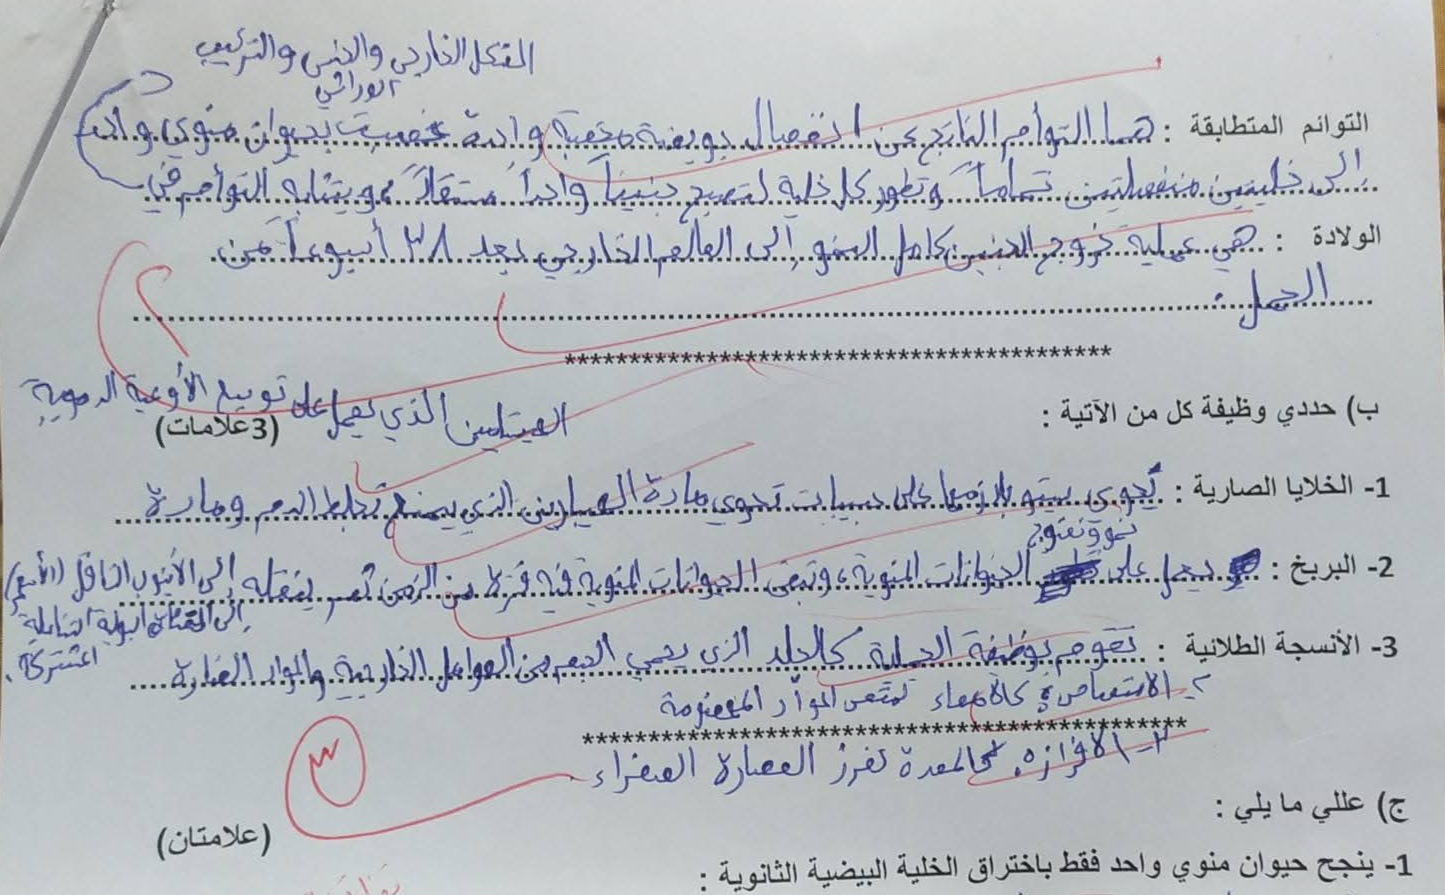 الشكل الخارجي والجنس والتركيب
الوراثي
التوائم المتطابقة : هما التوأم الناتج عن انفصال بويضة مخصبة واحدة خصبت بحيوان منوي واحد
إلى خليتين منفصلتين تماماً وتطور كل خلية لتصبح جنيناً واحداً مستقلاً ويتشابه التوأم في
الولادة : هي عملية خروج الجنين كامل النمو إلى العالم الخارجي بعد ٣٨ أسبوعاً من
الحمل.
٢
****************************************
ب) حددي وظيفة كل من الآتية : (3علامات)
الهيستامين الذي يعمل على توسيع الأوعية الدموية
1- الخلايا الصارية : يحوي سيتوبلازمها على حبيبات تحوي مادة الهيبارين الذي يمنع تخلط الدم ومادة
نمو ونضوج
2- البربخ : يعمل على الحيوانات المنوية، وتبقى الحيوانات المنوية فيه فترة من الزمن ثم ينقله إلى الأنبوب الناقل (الأسهر)
إلى القناة البولية التناسلية
المشتركة.
3- الأنسجة الطلائية : تقوم بوظيفة الحماية كالجلد الذي يحمي الجسم من العوامل الخارجية والمواد الضارة
٢- الامتصاص: كالأمعاء تمتص المواد المهضومة
********************************************
٣- الافراز: كالمعدة تفرز العصارة الصفراء
٣
ج) عللي ما يلي : (علامتان)
1- ينجح حيوان منوي واحد فقط باختراق الخلية البيضية الثانوية :